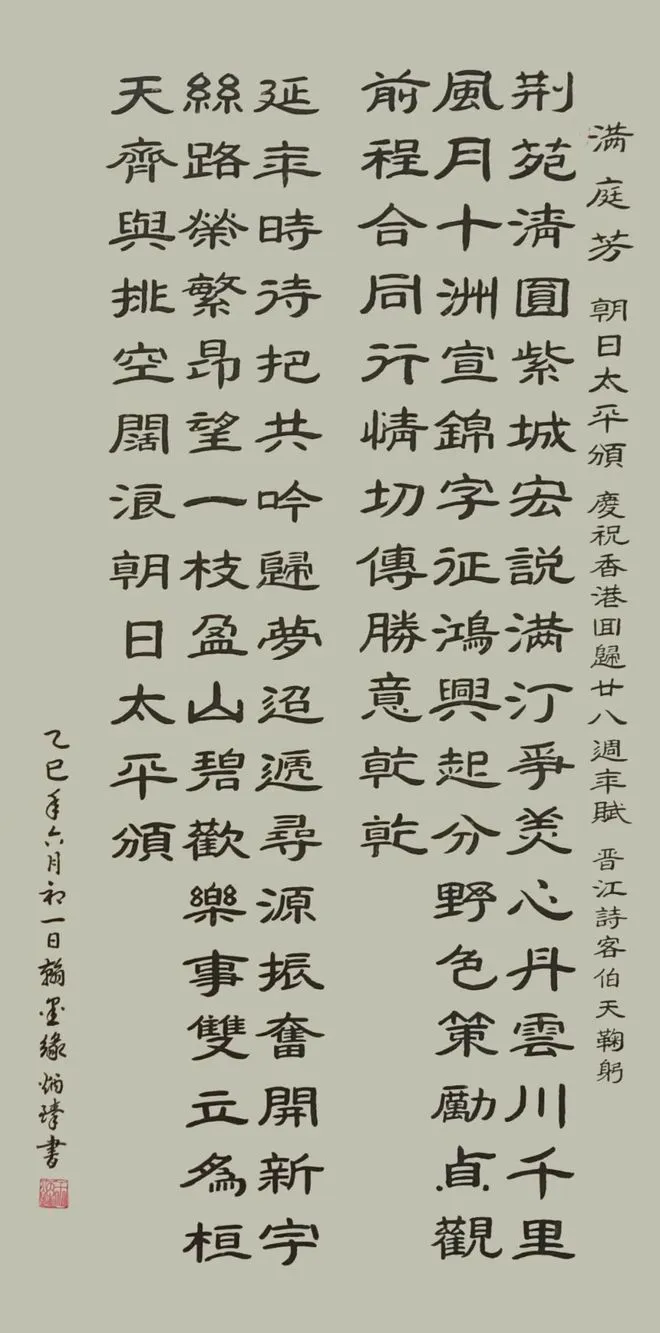 满庭芳 朝日太平頌 慶祝香港回歸廿八週年賦 晋江詩客伯天鞠躬
荆苑清圓紫城宏説满汀爭羡心丹雲川千里
風月十洲宣錦字征鴻興起分野色策勵貞觀
前程合同行情切傳勝意乾乾
延年時待把共吟歸夢迢遞尋源振奮開新宇
絲路榮繁昂望一枝盈山碧歡樂事雙立為桓
天齊與挑空闊浪朝日太平頌
乙巳年六月初一日翰墨緣炳瑋書